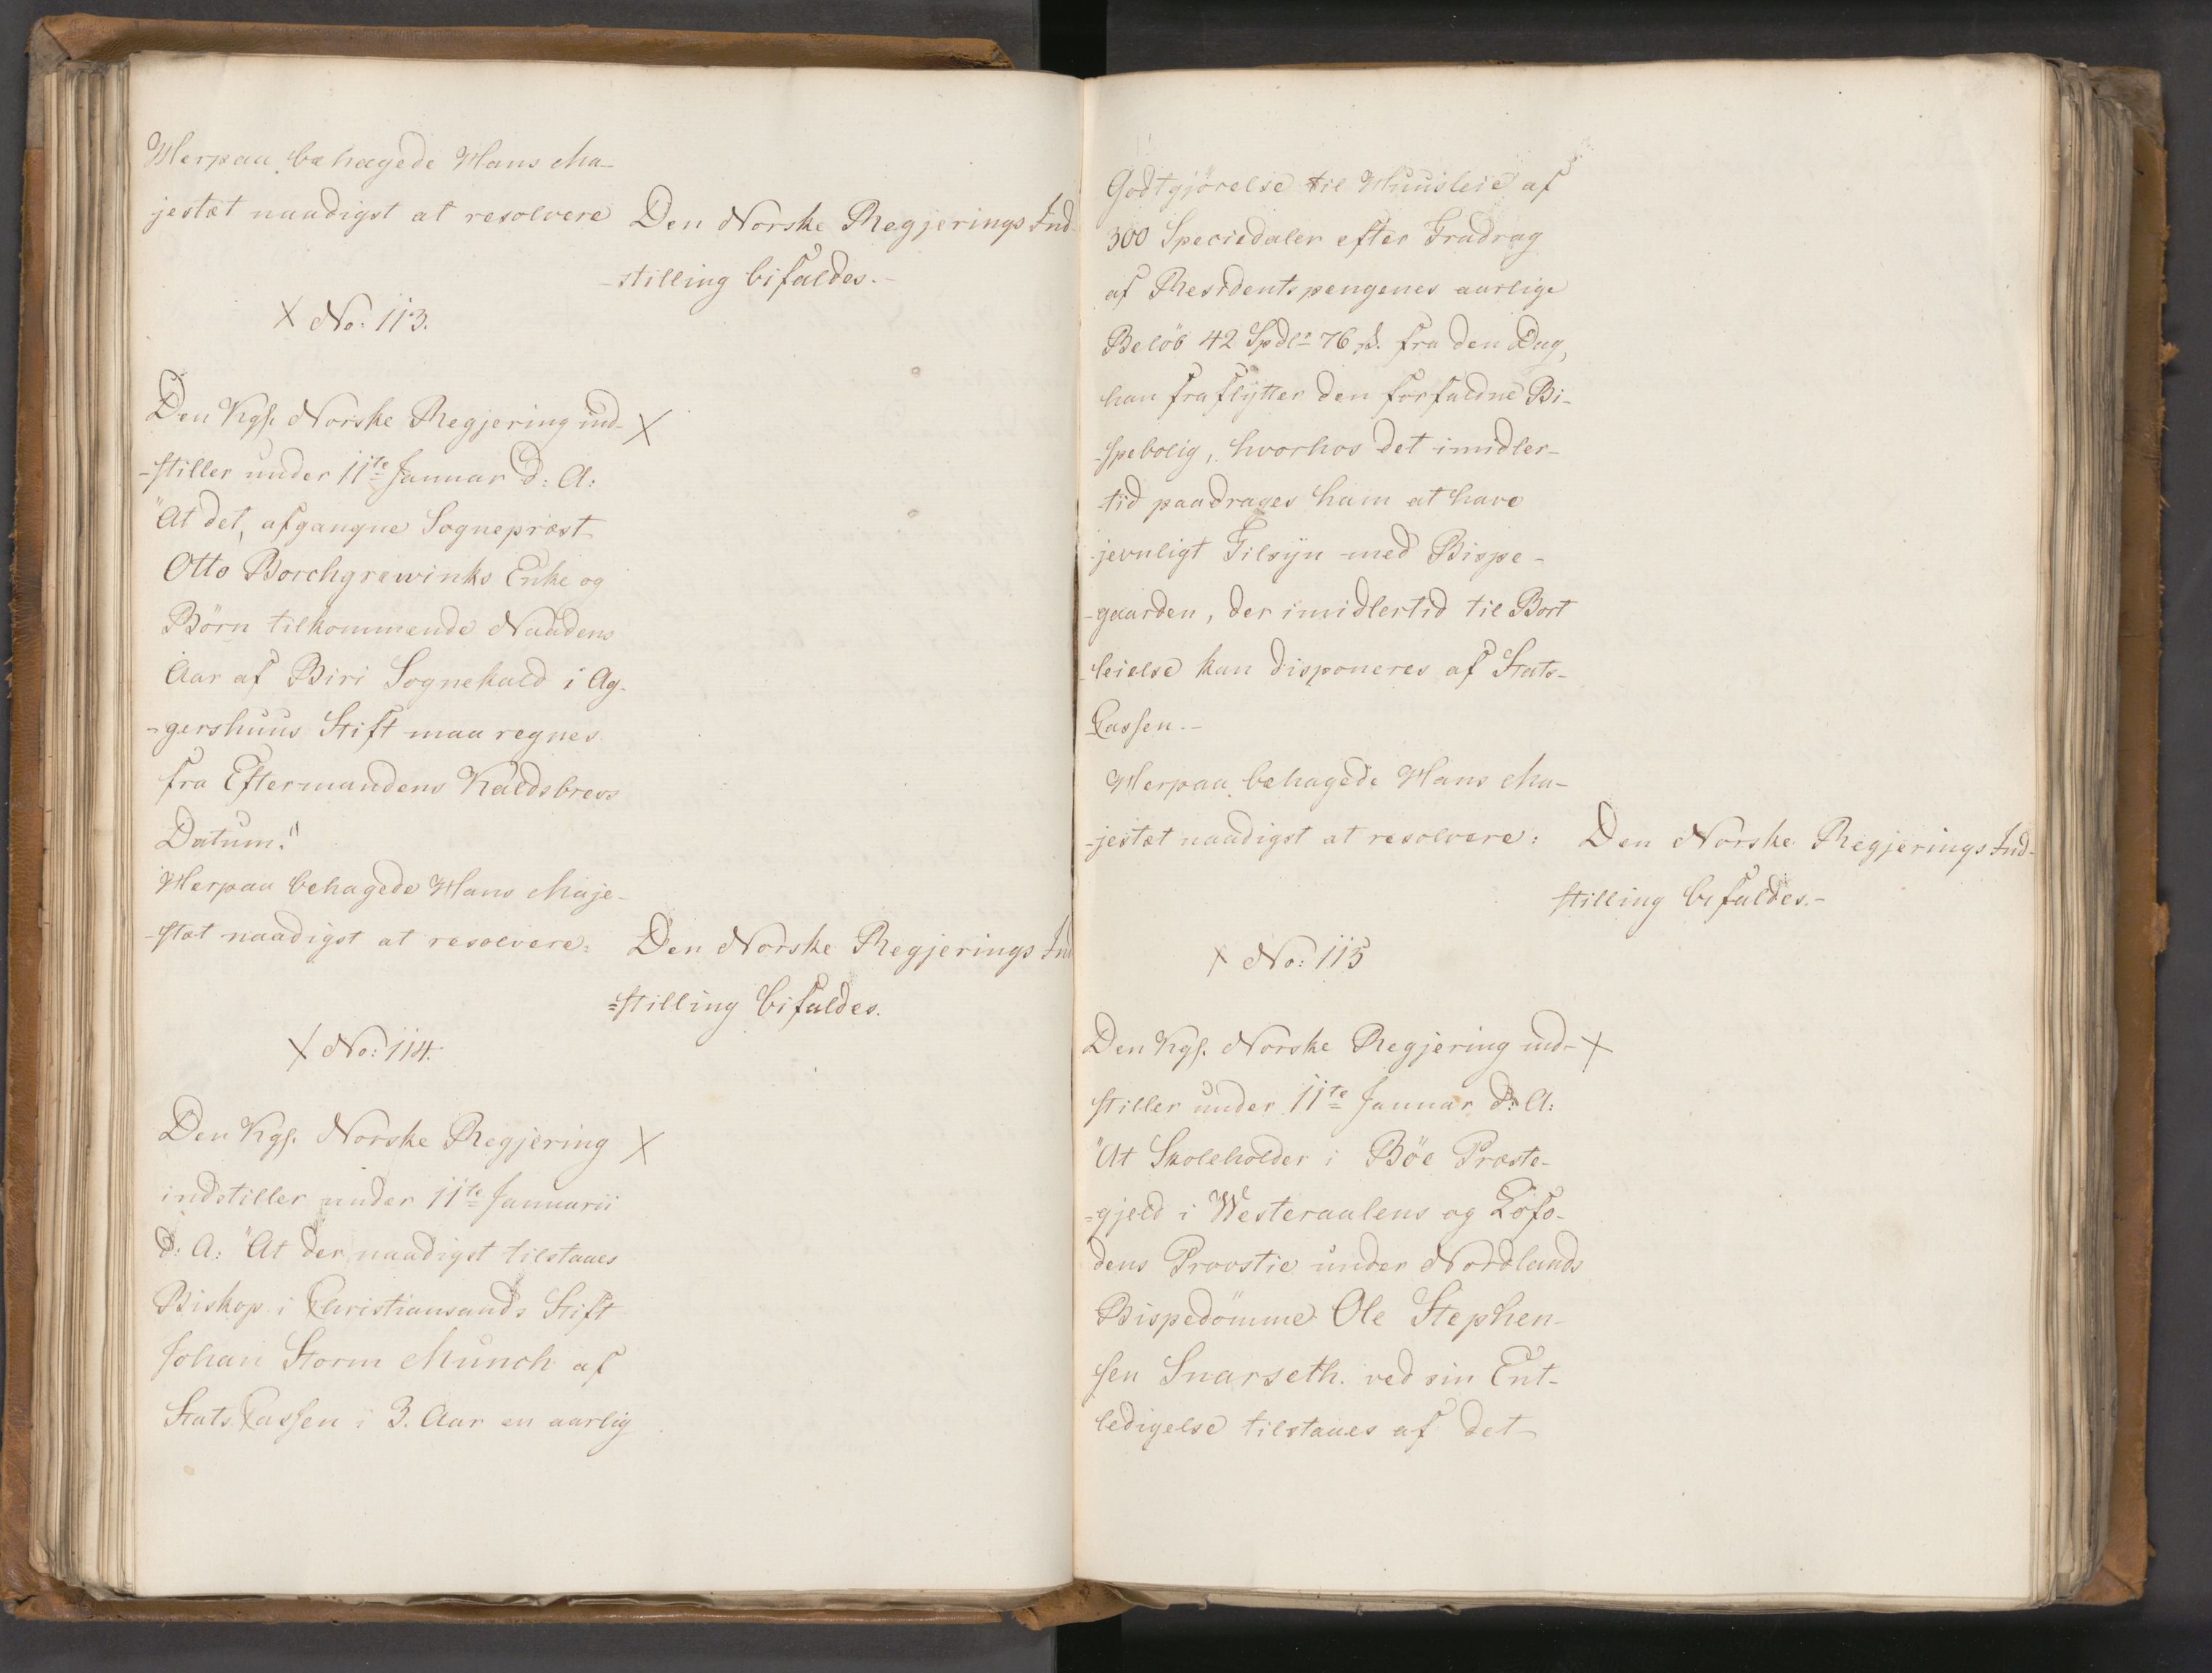 Herpaa behagede Hans Ma-
jestæt naadigst at resolvere Den Norske Regjerings Ind-
-stilling bifaldes.-
X No: 113.
Den Kgl. Norske Regjering ind- X
-stiller under 11te Januar d: A:
"At det, afgangne Sognepræst
Otto Borchgrewinks Enke og
Börn tilkommende Naadens
Aar af Biri Sognekald i Ag-
-gershuus Stift maa regnes
fra Eftermandens Kaldsbrevs
Datum."
Herpaa behagede Hans Maje-
-stæt naadigst at resolvere: Den Norske Regjerings Ind
=stilling bifaldes.
X No: 114.
Den Kgl. Norske Regjering X
indstiller under 11te Januarii
d: A: "At der naadigst tilstaaes
Biskop i Christiansands Stift
Johan Storm Munch af
Stats Cassen i 3. Aar en aarlig
Godtgjörelse til Huusleie af
300 Speciedaler efter Fradrag
af Residentspengenes aarlige
Belöb 42 Spdlr 76 ß. fra den Dag,
han fraflytter den forfaldne Bi-
-spebolig, hvorhos det imidler-
-tid paadrages ham at have
jevnligt Tilsyn med Bispe-
-gaarden, der imidlertid til Bort
-leielse kan disponeres af Stats-
Cassen.-
Herpaa behagede Hans Ma-
-jestæt naadigst at resolvere: Den Norske Regjerings Ind-
stilling bifaldes.-
X No: 115
Den Kgl. Norske Regjering ind- X
stiller under 11te Januar d: A:
"At Skoleholder i Böe Præste-
=gjeld i Westeraalens og Lofo-
dens Provstie under Nordlands
Bispedömme Ole Stephen-
sen Snarseth. ved sin Ent-
ledigelse tilstaaes af det